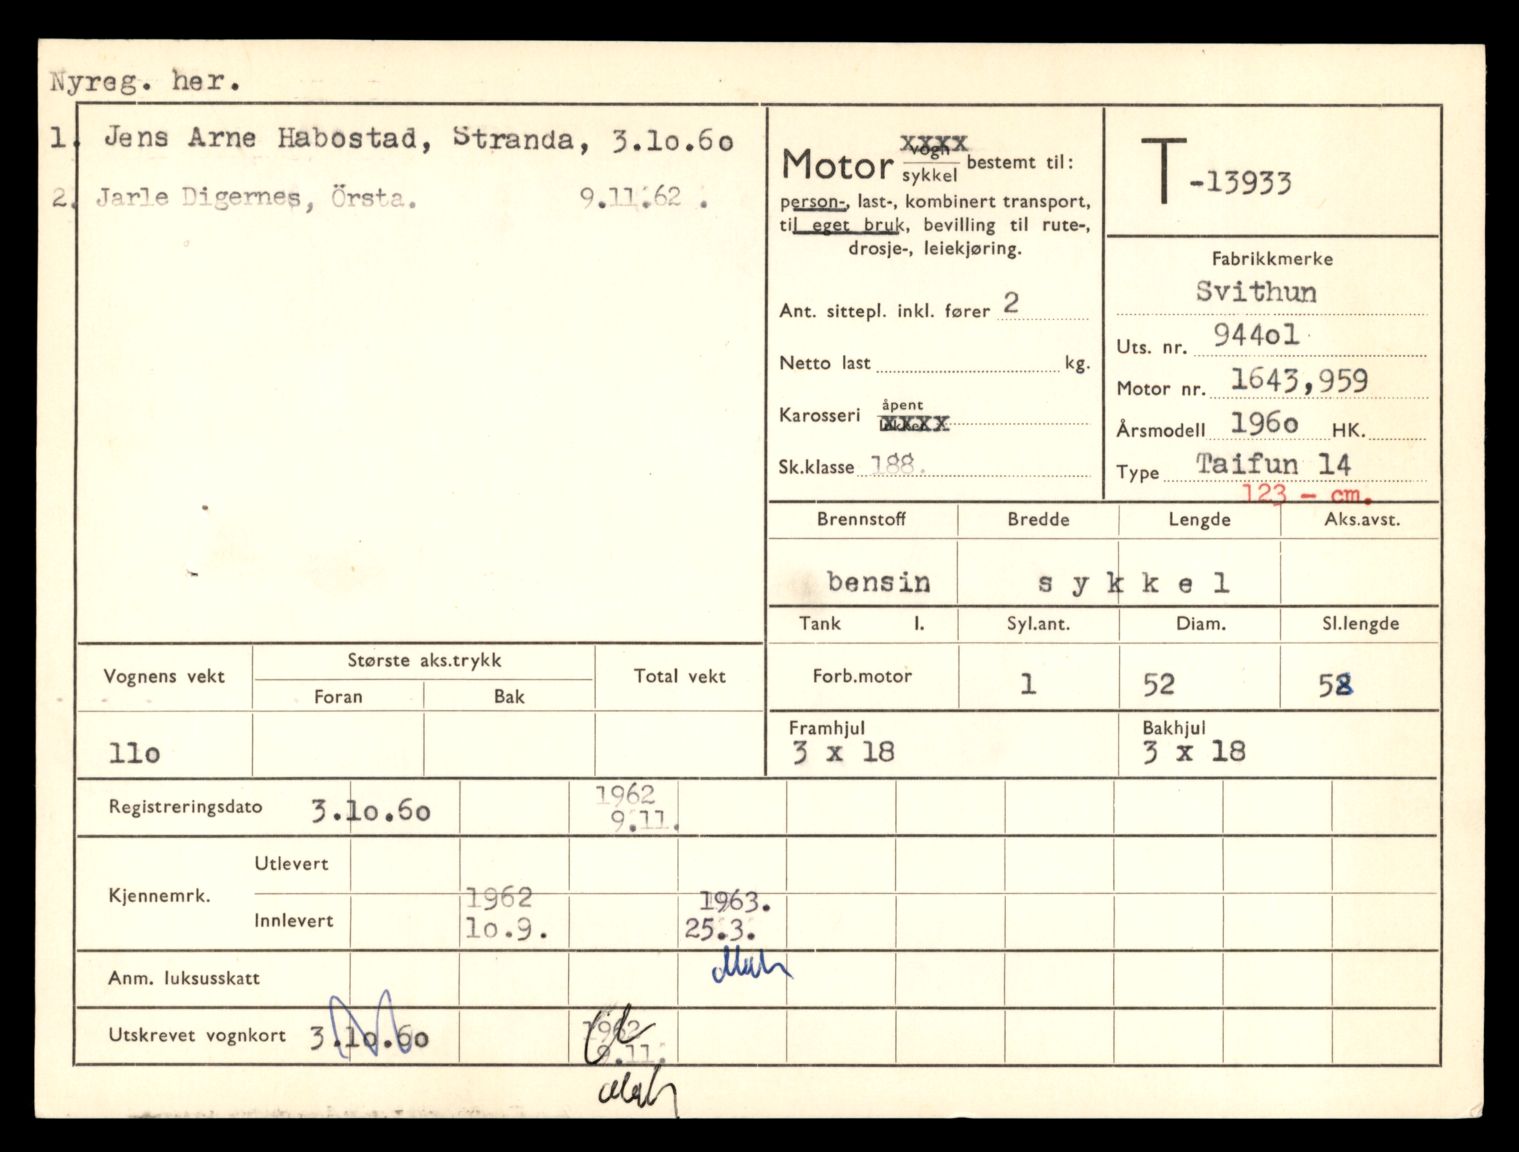 Nyreg. her.
1. Jens Arne Habostad, Stranda, 3.1o.6o
2. Jarle Digernes, Örsta. 9.11.62 .
Motor vogn xxxx
sykkel bestemt til:
person-, last-, kombinert transport,
til eget bruk, bevilling til rute-,
drosje-, leiekjøring.
Ant. sittepl. inkl. fører 2
Netto last kg.
Karosseri åpent
xxxx
Sk.klasse 188.
T-13933
Fabrikkmerke
Svithun
Uts. nr. 944o1
Motor nr. 1643,959
Årsmodell 196o HK.
Type Taifun 14
123 - cm.
Brennstoff Bredde Lengde Aks.avst.
bensin s y k k e l
Tank l. Syl.ant. Diam. Sl.lengde
Forb.motor 1 52 58
Framhjul Bakhjul
3 x 18 3 x 18
Vognens vekt Største aks.trykk Total vekt
Foran Bak
11o
Registreringsdato 3.1o.6o 1962
9.11.
Kjennemrk. Utlevert
Innlevert 1962 1963.
1o.9. 25.3.
Anm. luksusskatt
Utskrevet vognkort 3.1o.6o 1962
9.11.